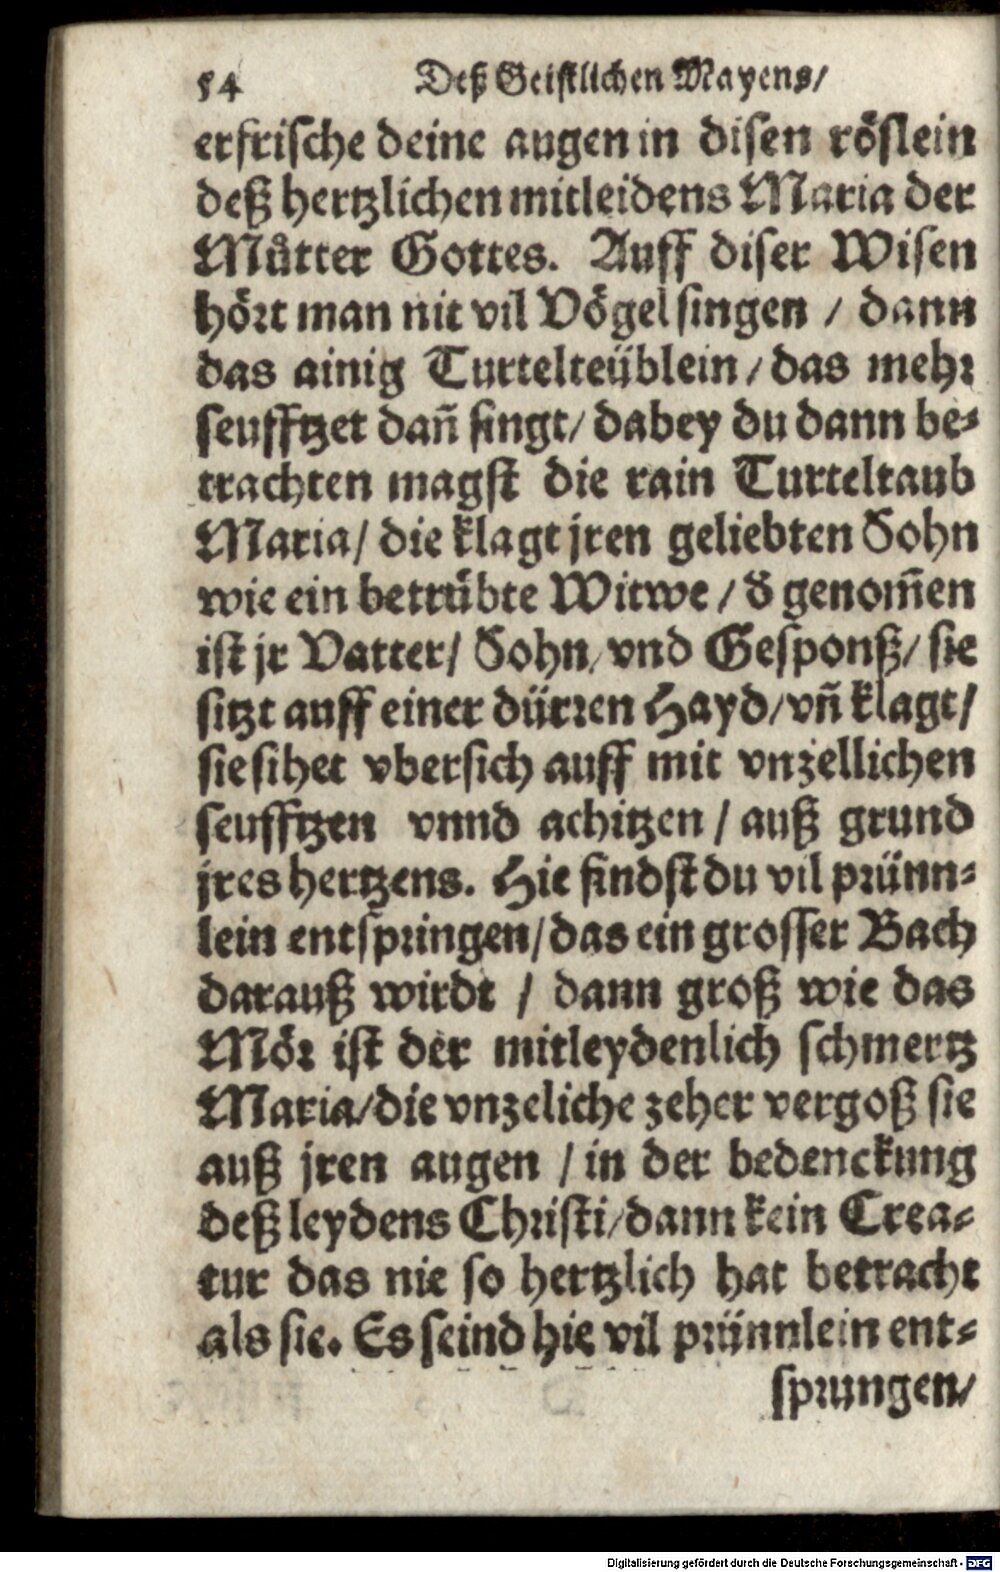 54 Deß Geistlichen Mayens/
erfrische deine augen in disen röslein
deß hertzlichen mitleidens Maria der
Můtter Gottes. Auff diser Wisen
hört man nit vil Vögel singen / dann
das ainig Turtelteüblein / das mehr
seufftzet dañ singt / dabey du dann be-
trachten magst die rain Turteltaub
Maria / die klagt jren geliebten Sohn
wie ein betrübte Witwe / ð genom̃en
ist jr Vatter / Sohn / vnd Gesponß / sie
sitzt auff einer dürren Hayd / vñ klagt /
sie sihet vbersich auff mit vnzellichen
seufftzen vnnd achitzen / auß grund
jres hertzens. Hie findst du vil prünn-
lein entspringen / das ein grosser Bach
darauß wirdt / dann groß wie das
Mör ist der mitleydenlich schmertz
Maria / die vnzeliche zeher vergoß sie
auß jren augen / in der bedenckung
deß leydens Christi / dann kein Crea-
tur das nie so hertzlich hat betracht
als sie. Es seind hie vil prünnlein ent-
sprungen /
Digitalisierung gefördert durch die Deutsche Forschungsgemeinschaft - DFG